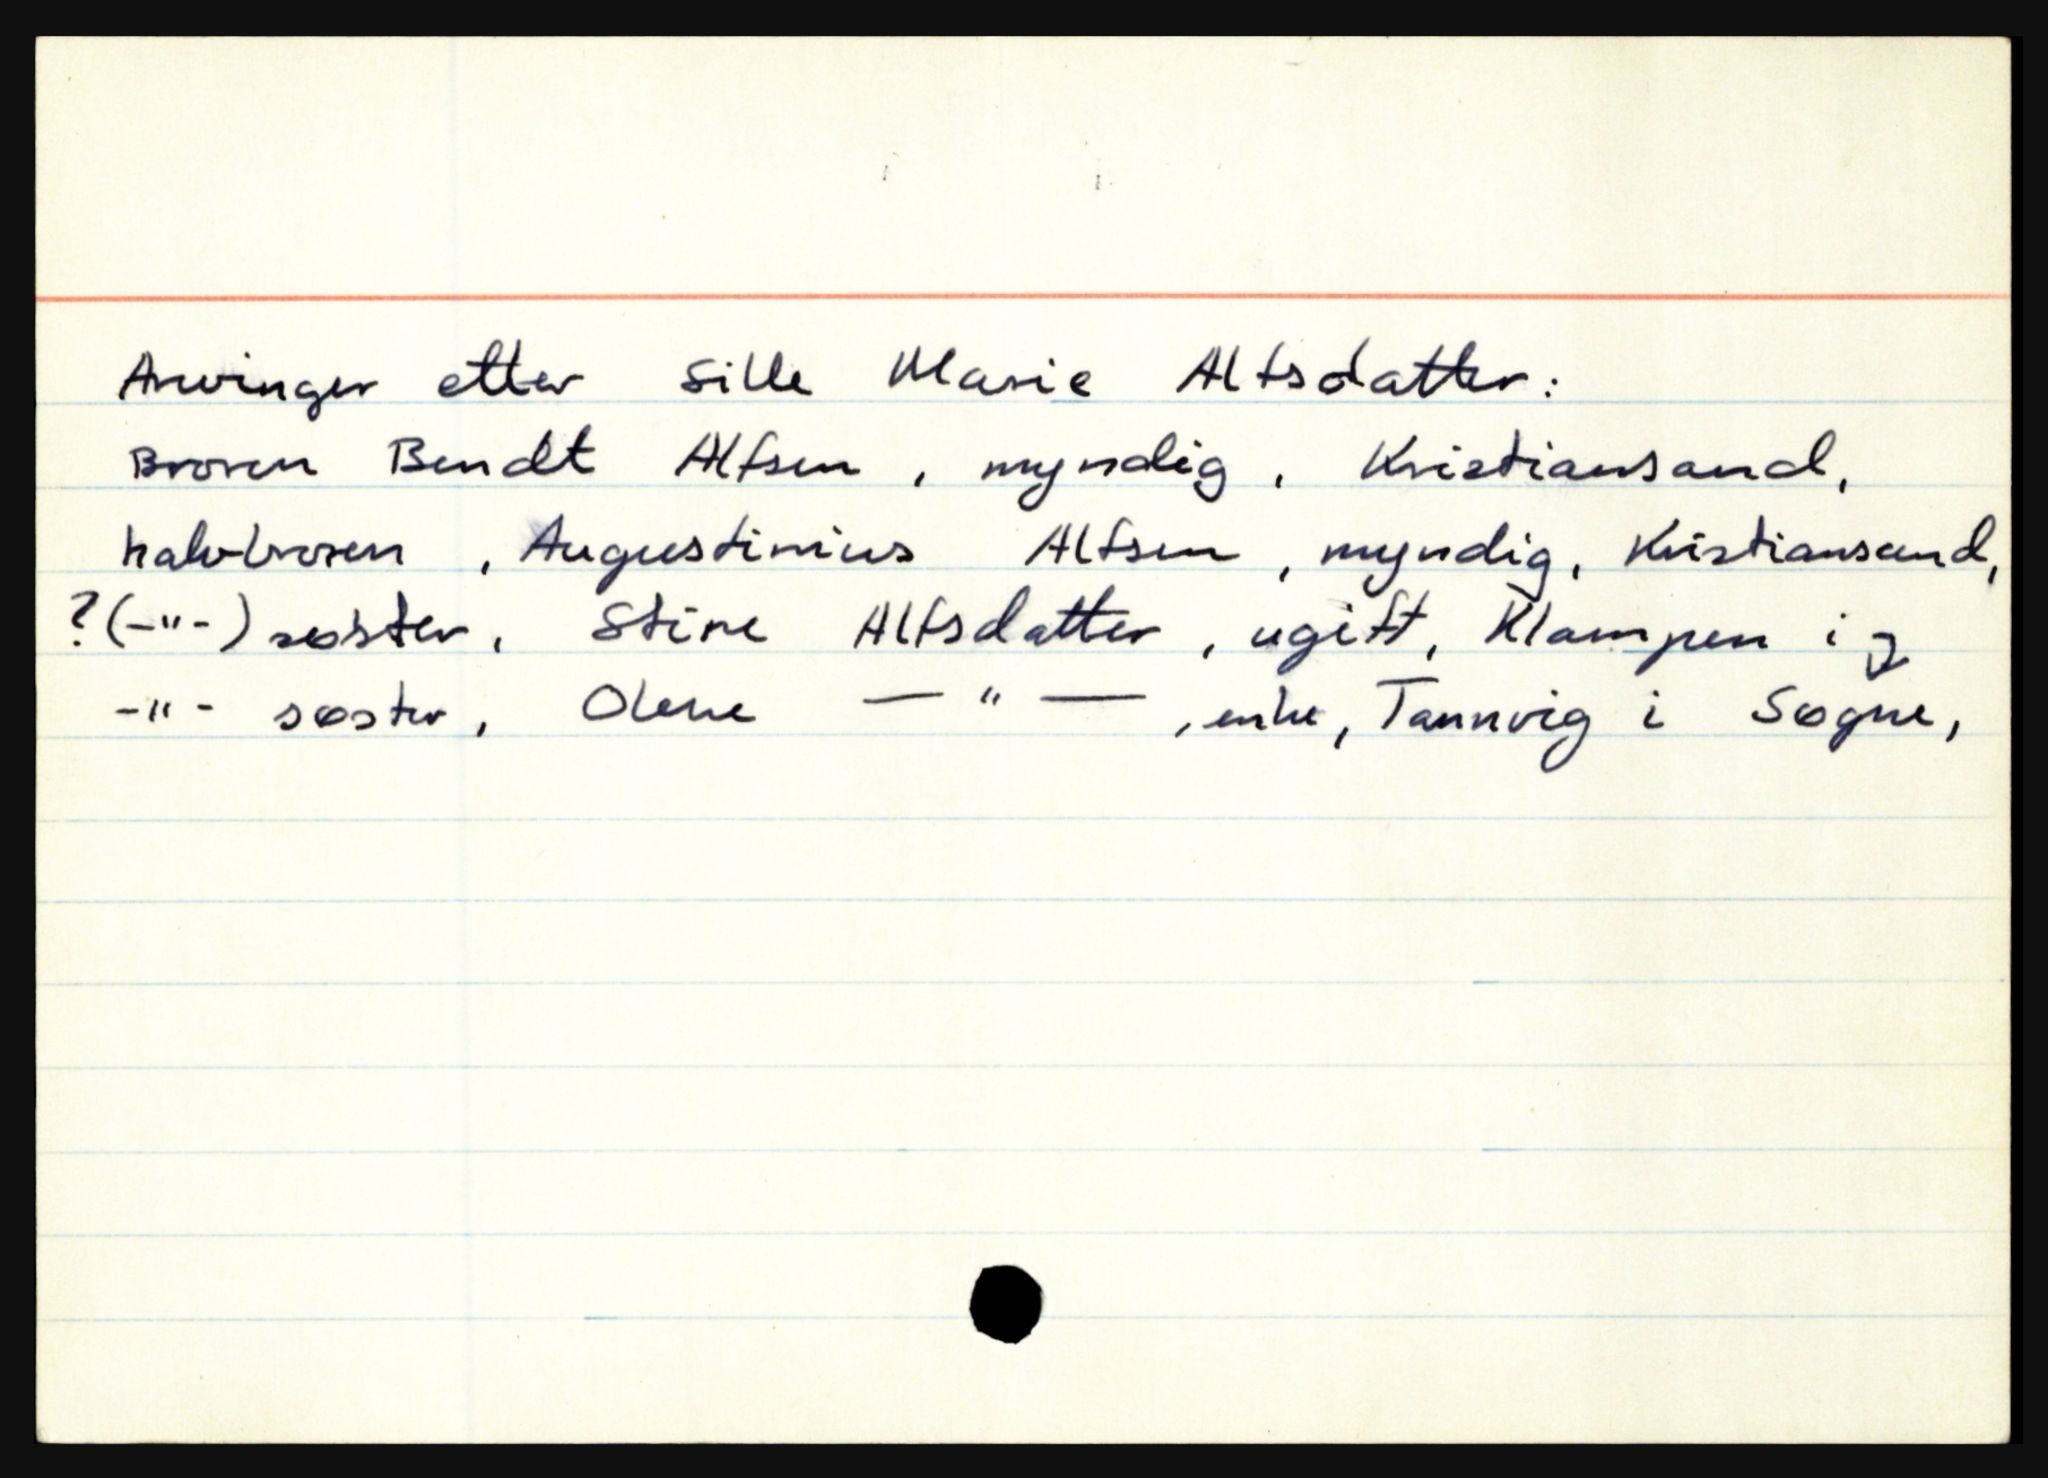 Arvinger etter Sille Marie Alfsdatter:
Broren Bendt Alfsen, myndig, Kristiansand,
halvbroren, Augustinius Alfsen, myndig, Kristiansand,
? (-"-) søster, Stine Alfsdatter, ugift, Klampen i
-"- søster, Olene — " —, enke, Tannvig i Søgne,